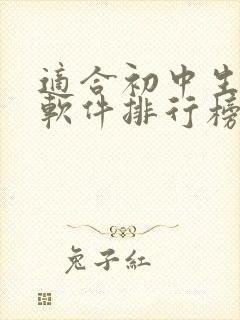 適合初中生
軟件排行榜
兔子紅